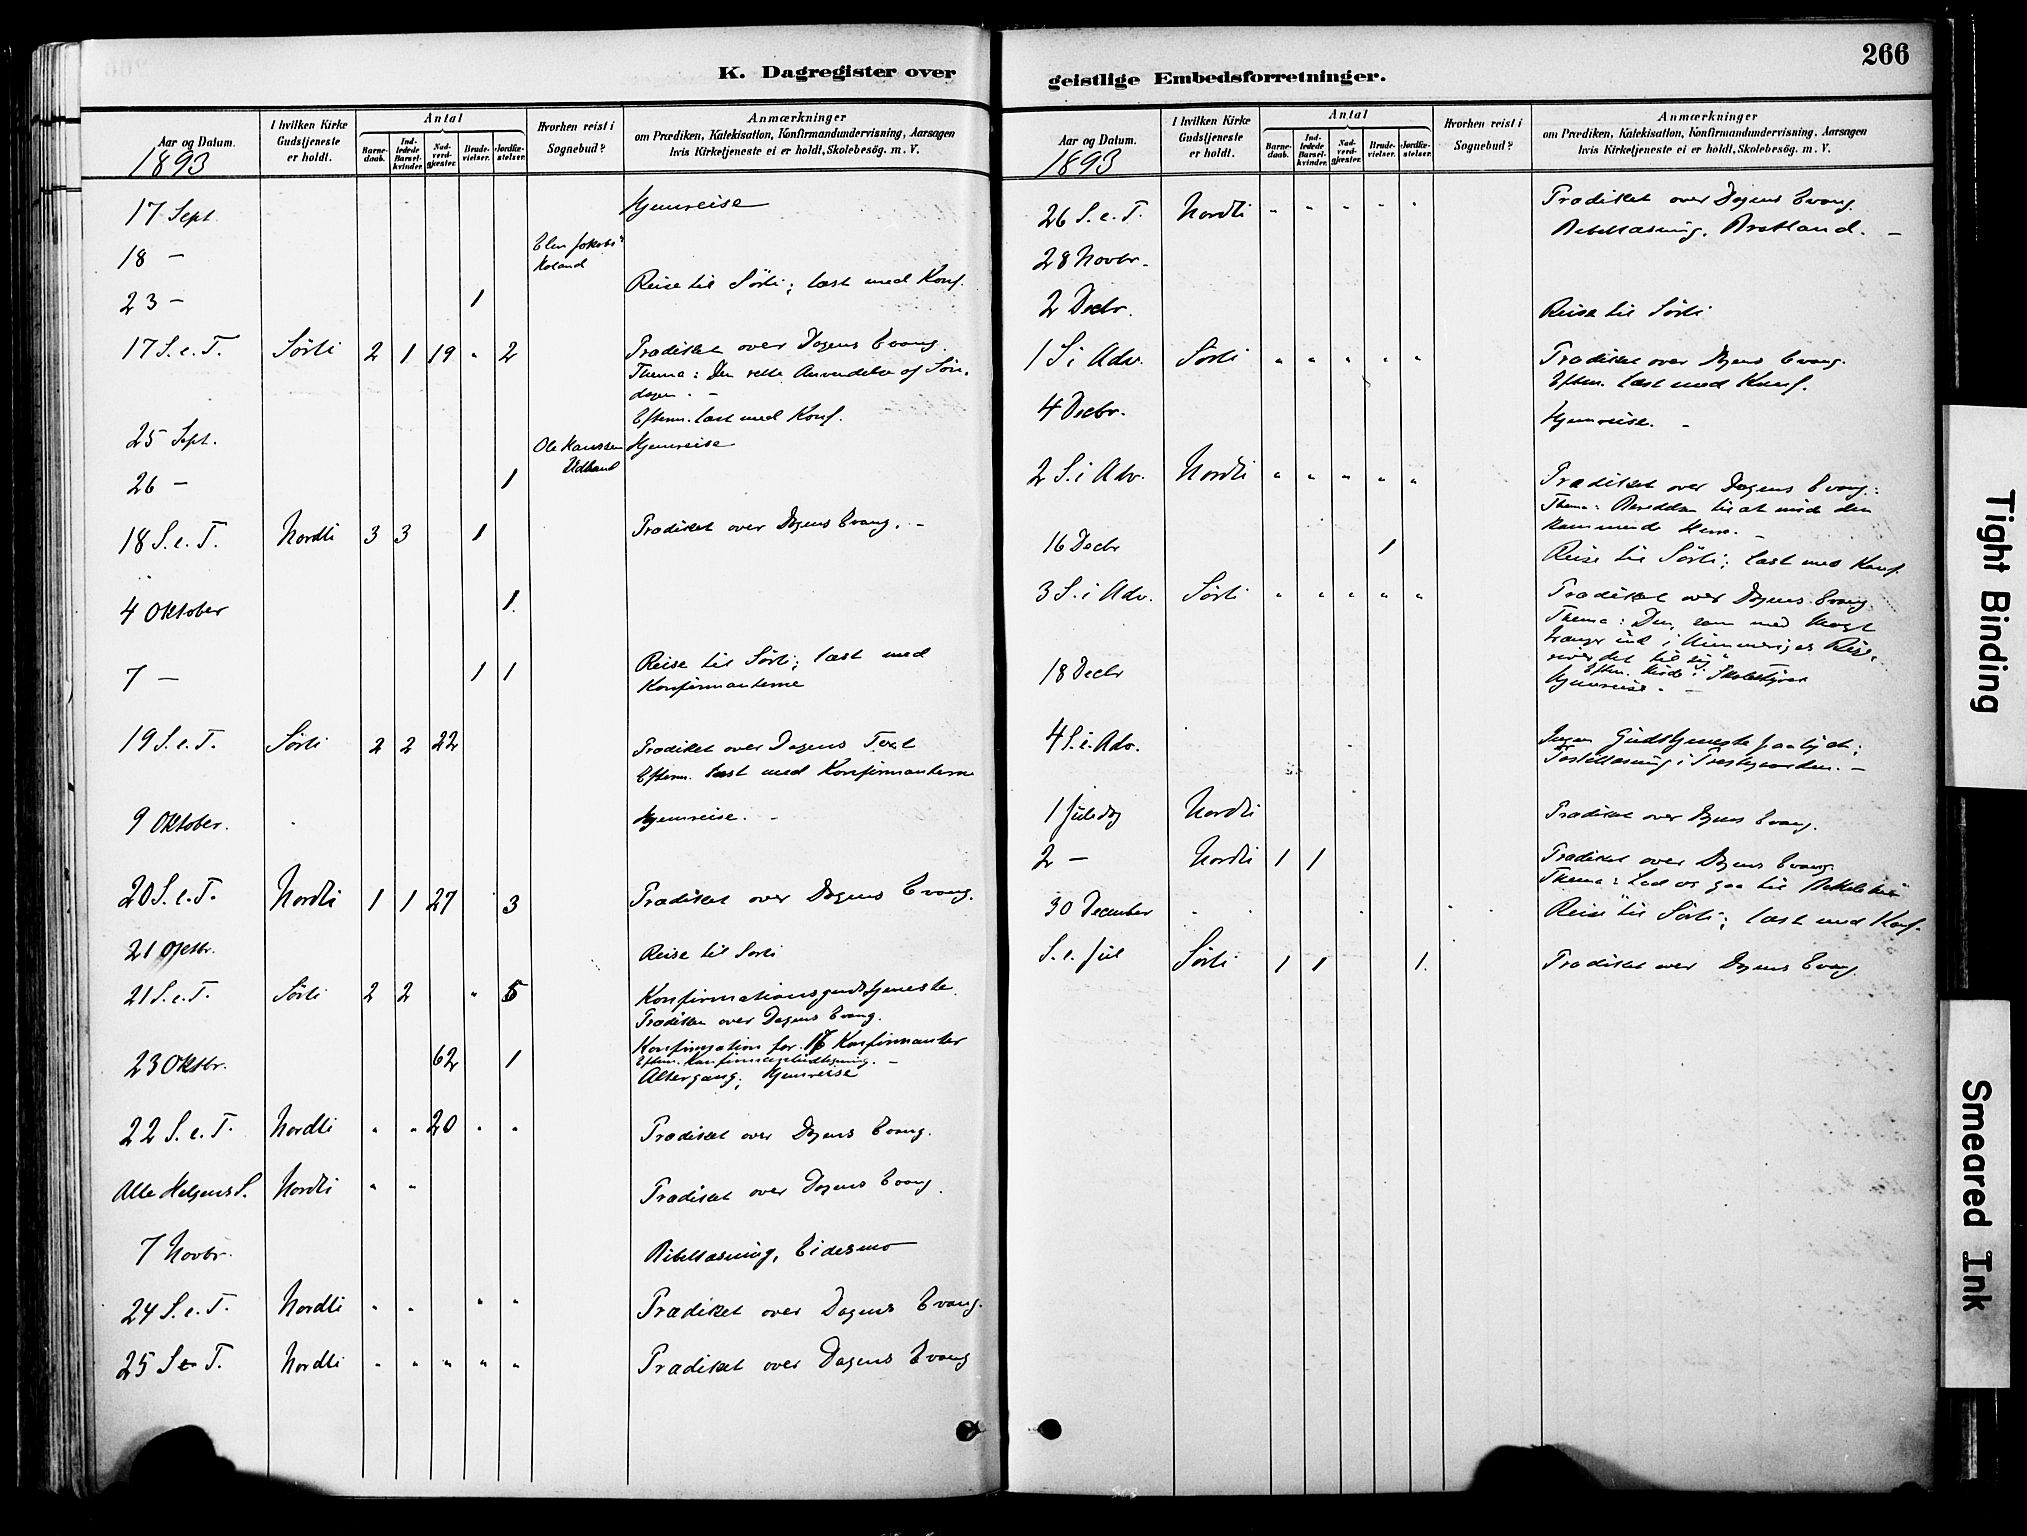 K. Dagregister over
Aar og Datum.
I hvilken Kirke Gudstjeneste er holdt.
Antal
Barne-daab.
Ind-ledede Barsel-kvinder.
Nad-verd-gjæster.
Brude-vielser.
Jordfæ-stelser.
Hvorhen reist i Sognebud?
Anmærkninger
om Prædiken, Katekisation, Konfirmandundervisning, Aarsagen
hvis Kirketjeneste ei er holdt, Skolebesög. m. V.
1893
17 Sept. Hjemreise
18 –
23 – 1 Reise til Sörli; læst med Konf.
17 S. e. T. Sörli 2 1 19 " 2 Prædiket over Dagens Evang.
Thema: Den rette Anvendelse af Sön-
dagen. –
Efterm. læst med Konf.
25 Sept. Ole Hanssen Hjemreise
26 – 1
18 S. e. T. Nordli 3 3 1 Prædiket over Dagens Evang. –
4 Oktober 1.
7 – 1 1 Reise til Sörli; læst med
Konfirmanterne
19 S. e. T. Sörli 2 2 22 Prædiket over Dagens Text
Efterm. læst med Konfirmanterne
9 Oktober. Hjemreise. –
20 S. e. T. Nordli 1 1 27 3 Prædiket over Dagens Evang.
21 Oktbr. Reise til Sörli
21 S. e. T. Sörli 2 2 " 5 Konfirmationsgudstjeneste.
Prædiken over Dagens Evang.
Konfirmation for Konfirmanter
Efterm.
23 Oktbr. 62 1 Altergang; Hjemreise
22 S. e. T. Nordli " " 20 " " Prædiket over Dagens Evang.
Alle Helgens S. Nordli " " Prædiket over Dagens Evang.
7 Novbr. Bibellæsning, Eidesmo
24 S. e. T. Nordli " " " " Prædiket over Dagens Evang.
25 S e T. Nordli " " " " " Prædiket over Dagens Evang
266
geistlige Embedsforretninger.
Aar og Datum.
I hvilken Kirke Gudstjeneste er holdt.
Antal
Barne-daab.
Ind-ledede Barsel-kvinder.
Nad-verd-gjæster.
Brude-vielser.
Jordfæ-stelser.
Hvorhen reist i Sognebud?
Anmærkninger
om Prædiken, Katekisation, Konfirmandundervisning, Aarsagen
hvis Kirketjeneste ei er holdt, Skolebesög. m. V.
1893
26 S. e. T. Nordli " " " " " Prædiket over Dagens Evang.
28 Novbr. Bibellæsning, Brætland. –
2 Decbr. Reise til Sörli
1 S i Adv. Sörli " " " " " Prædiket over Dagens Evang.
Efterm. læst med Konf.
4 Decbr. Hjemreise. –
2 S. i Adv. Nordli " " " " " Prædiket over Dagens Evang.:
Thema: til at möde den
kommende Herre. –
16 Decbr 1 Reise til Sörli; læst med Konf.
3 S. i Adv. Sörli " " " " " Prædiket over Dagens Evang.
Thema: Den, som med Magt
trænger ind i Himmeriges Rige,
river det til sig.
Efterm.
18 Decbr Hjemreise. –
4 S. i. Adv. Ingen Gudstjeneste
1 Juledag Nordli Prædiket over Dagens Evang.
2 – Nordli 1 1 Prædiket over Dagens Evang.
Thema: Lad os gaa til Bethlehem
30 December Reise til Sörli; læst med Konf.
S. e. Jul Sörli 1 1 1. Prædiket over Dagens Evang.
Tight Binding
Smeared Ink